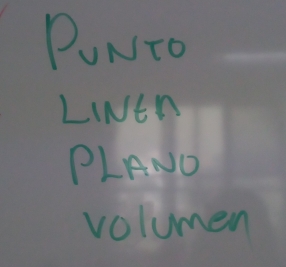 PUNTO
LINEA
PLANO
Volumen